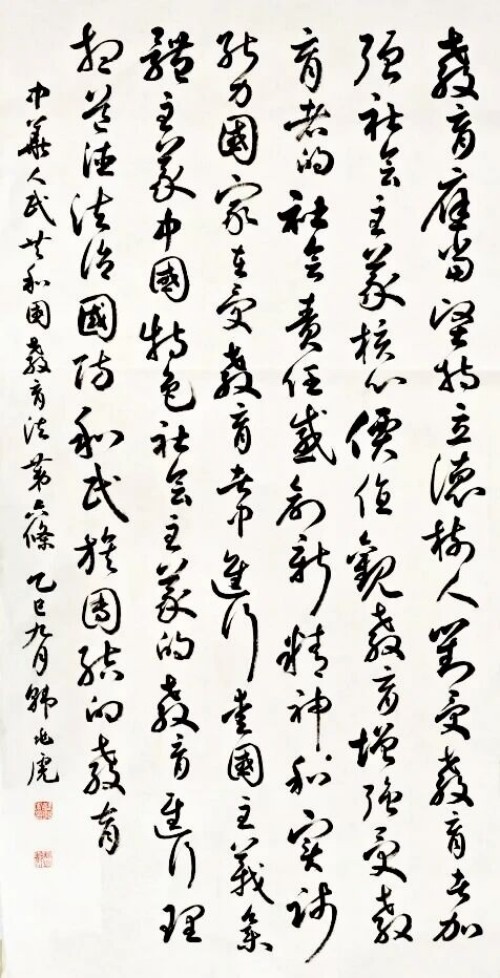 教育應當堅持立德樹人對受教育者加
强社会主義核心價值觀教育增强受教
育者的社会責任感創新精神和實踐
能力國家在受教育者中進行愛國主義集
體主義中國特色社会主義的教育進行理
想道德法治國防和民族團結的教育
中華人民共和國教育法第六條 乙巳九月 韓兆虎